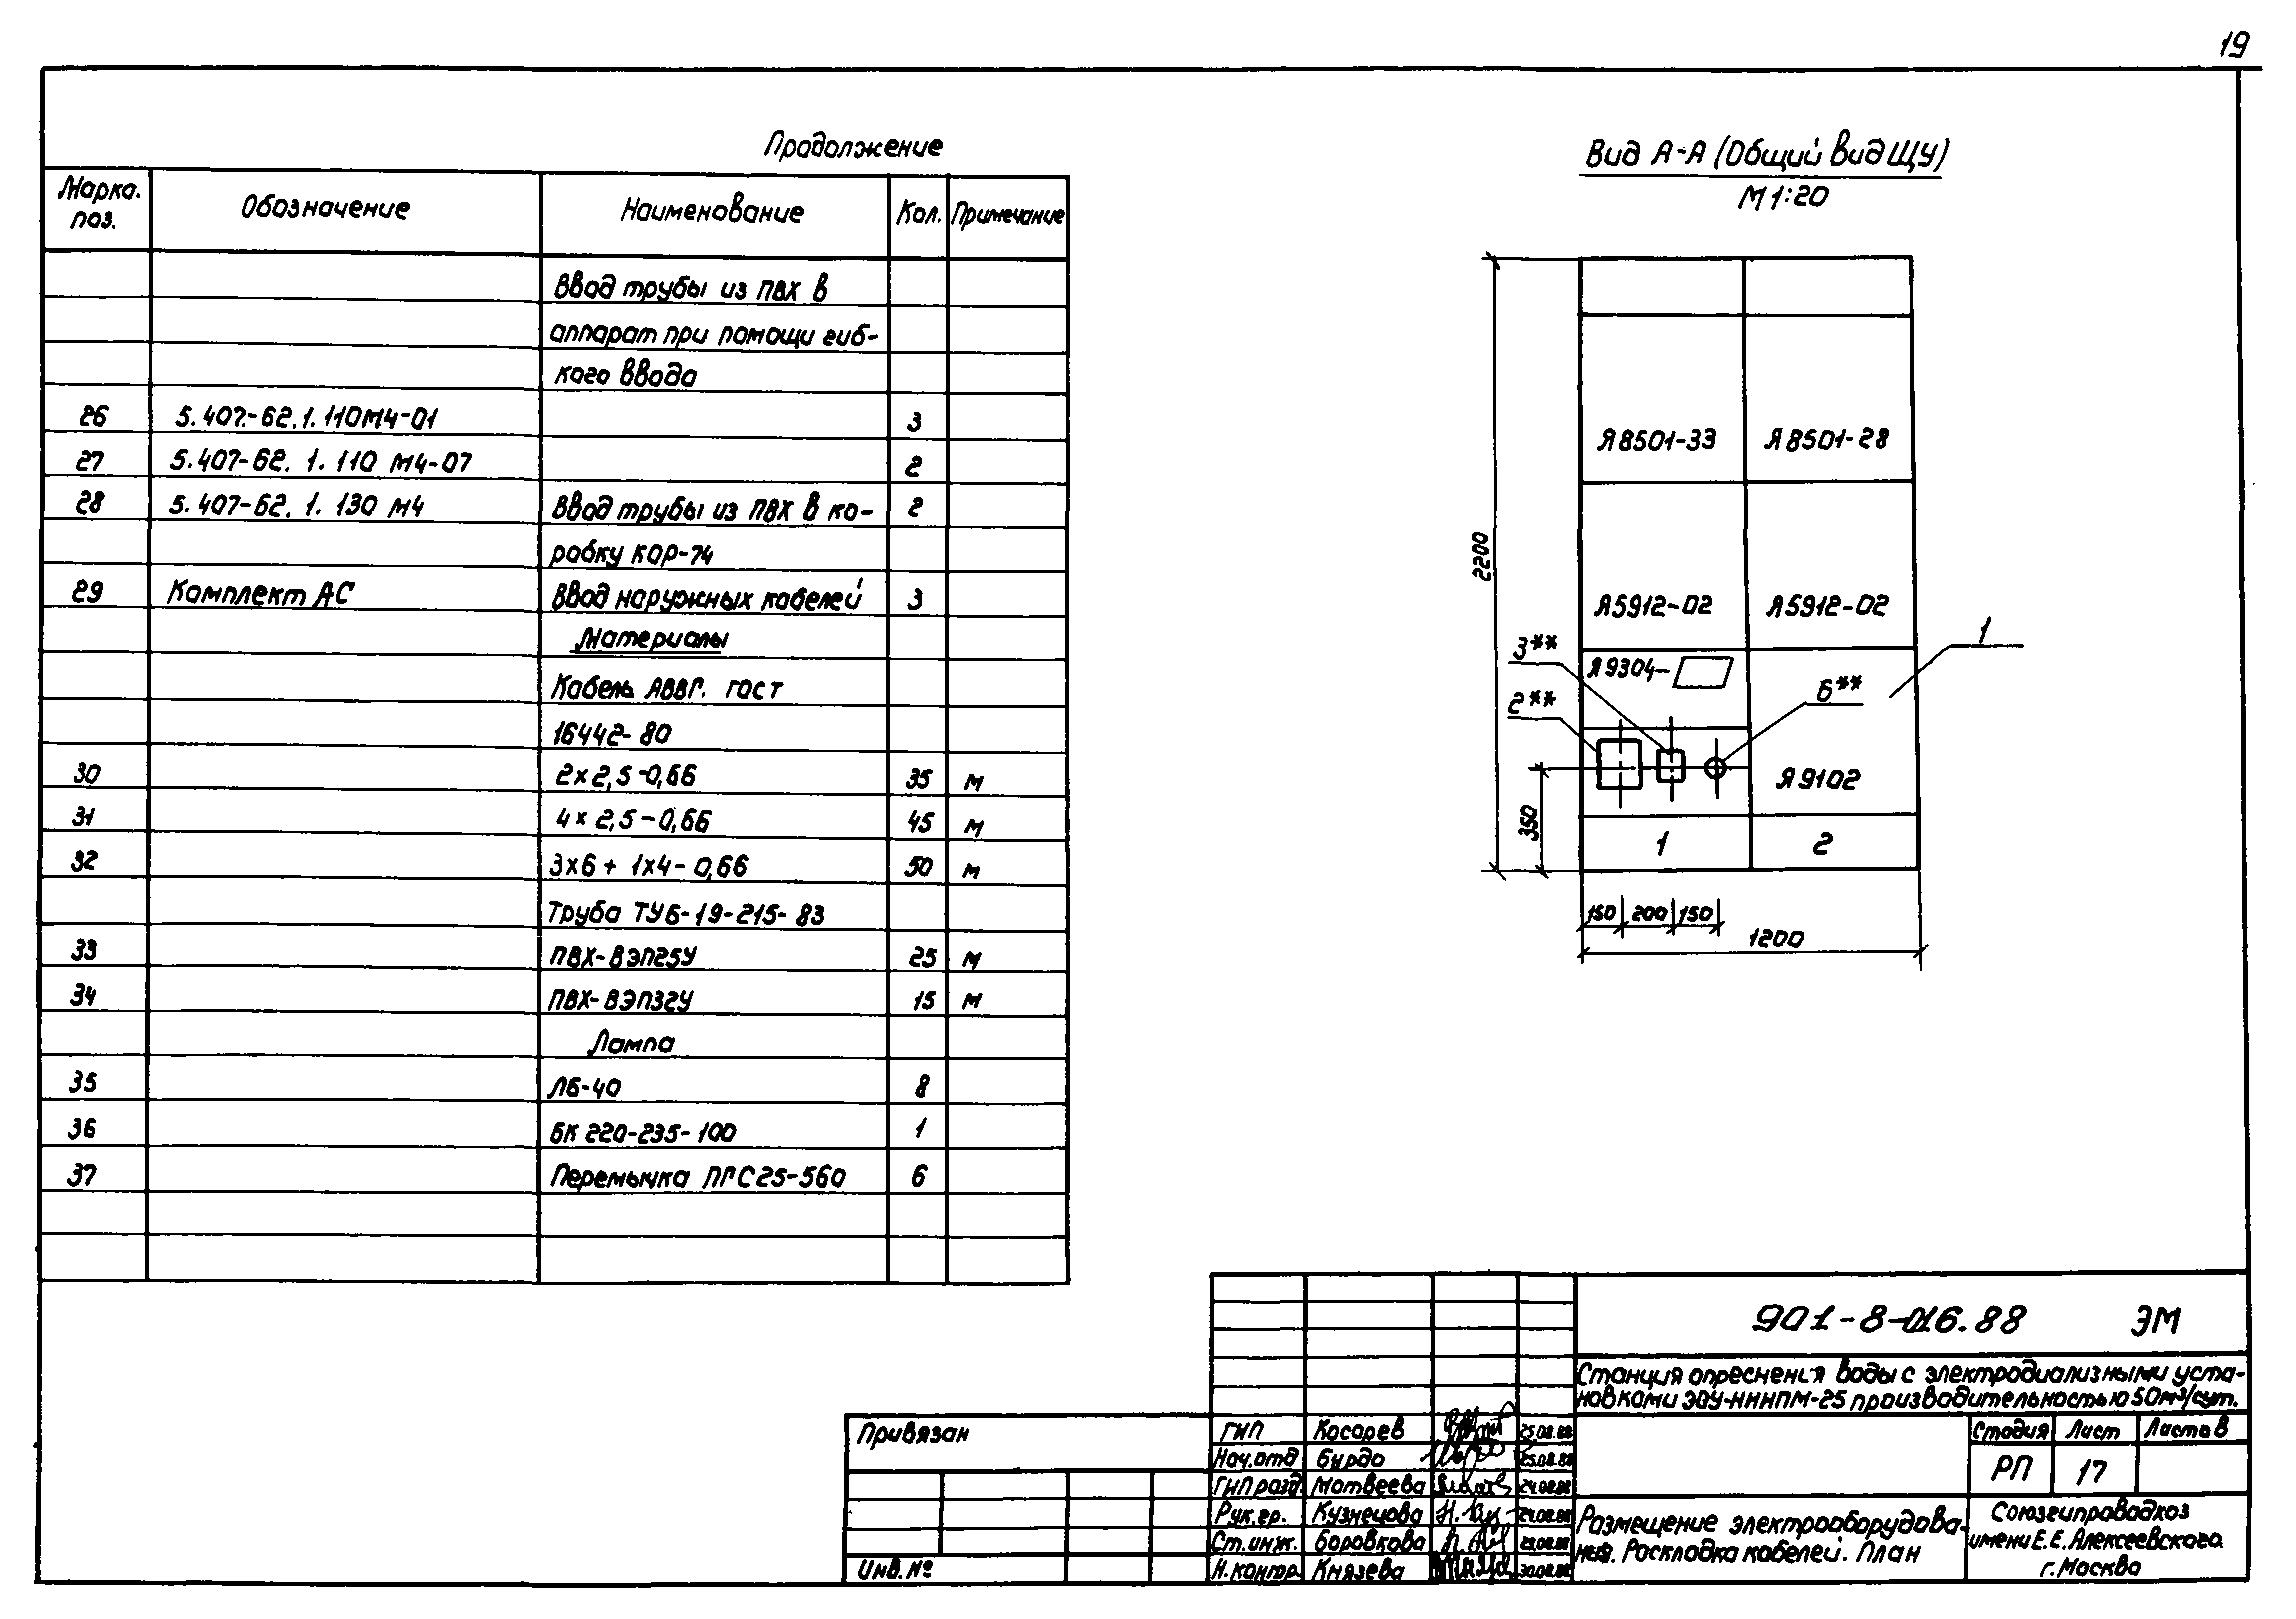 19
Продолжение
Марка. поз. Обозначение Наименование Кол. Примечание
Ввод трубы из ПВХ в
аппарат при помощи гиб-
кого ввода
26 5.407-62.1.110М4-01 3
27 5.407-62.1.110 М4-07 2
28 5.407-62.1.130 М4 Ввод трубы из ПВХ в ко- 2
робку КОР-74
29 Комплект АС Ввод наружных кабелей 3
Материалы
Кабель АВВГ. гост
16442-80
30 2х2,5-0,66 35 м
31 4х2,5-0,66 45 м
32 3х6+1х4-0,66 50 м
Труба ТУ6-19-215-83
33 ПВХ-ВЭП25У 25 м
34 ПВХ-ВЭП32У 15 м
Лампа
35 ЛБ-40 8
36 БК 220-235-100 1
37 Перемычка ПГС25-560 6
Вид А-А (Общий вид ЩУ)
М 1:20
Я8501-33 Я8501-28
2200
Я5912-02 Я5912-02
3** 1
Я9304-
2** 6**
Я9102
350
1 2
150 200 150
1200
901-8-016.88 ЭМ
Станция опреснения воды с электродиализными уста-
новками ЭДУ-НИИПМ-25 производительностью 50м³/сут.
Привязан
Инв. №
ГИП Косарев 25.08.88
Нач.отд Бурдо 25.08.88
ГИП разд. Матвеева 24.08.88
Рук.гр. Кузнецова 24.08.88
Ст.инж. Боровкова 23.08.88
Н.контр. Князева 30.08.88
Стадия Лист Листов
РП 17
Размещение электрооборудова-
ния. Раскладка кабелей. План
Союзгипроводхоз
имени Е.Е.Алексеевского
г.Москва